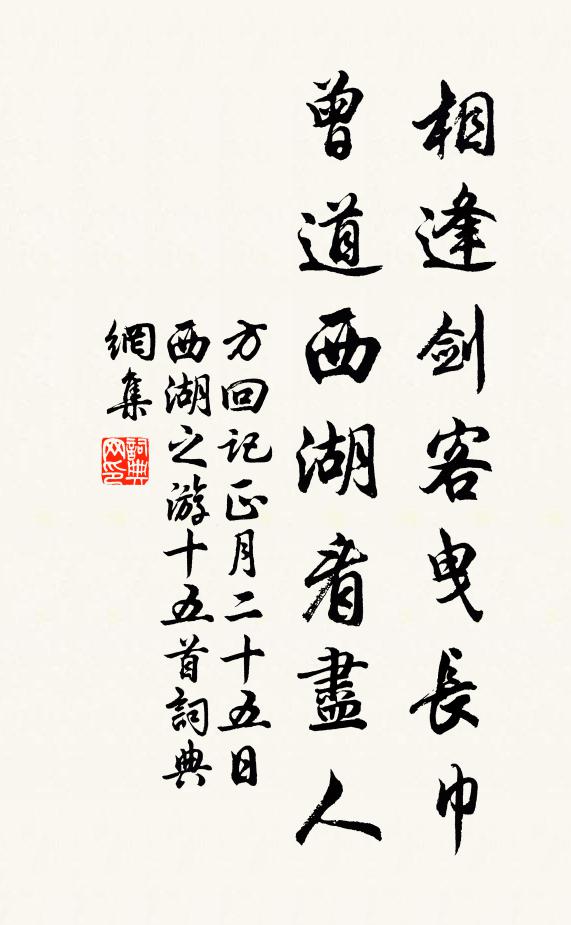 相逢劍客曳長巾
曾道西湖看盡人
方回記正月二十五日
西湖之游十五首詞典
網集
詞典
网印